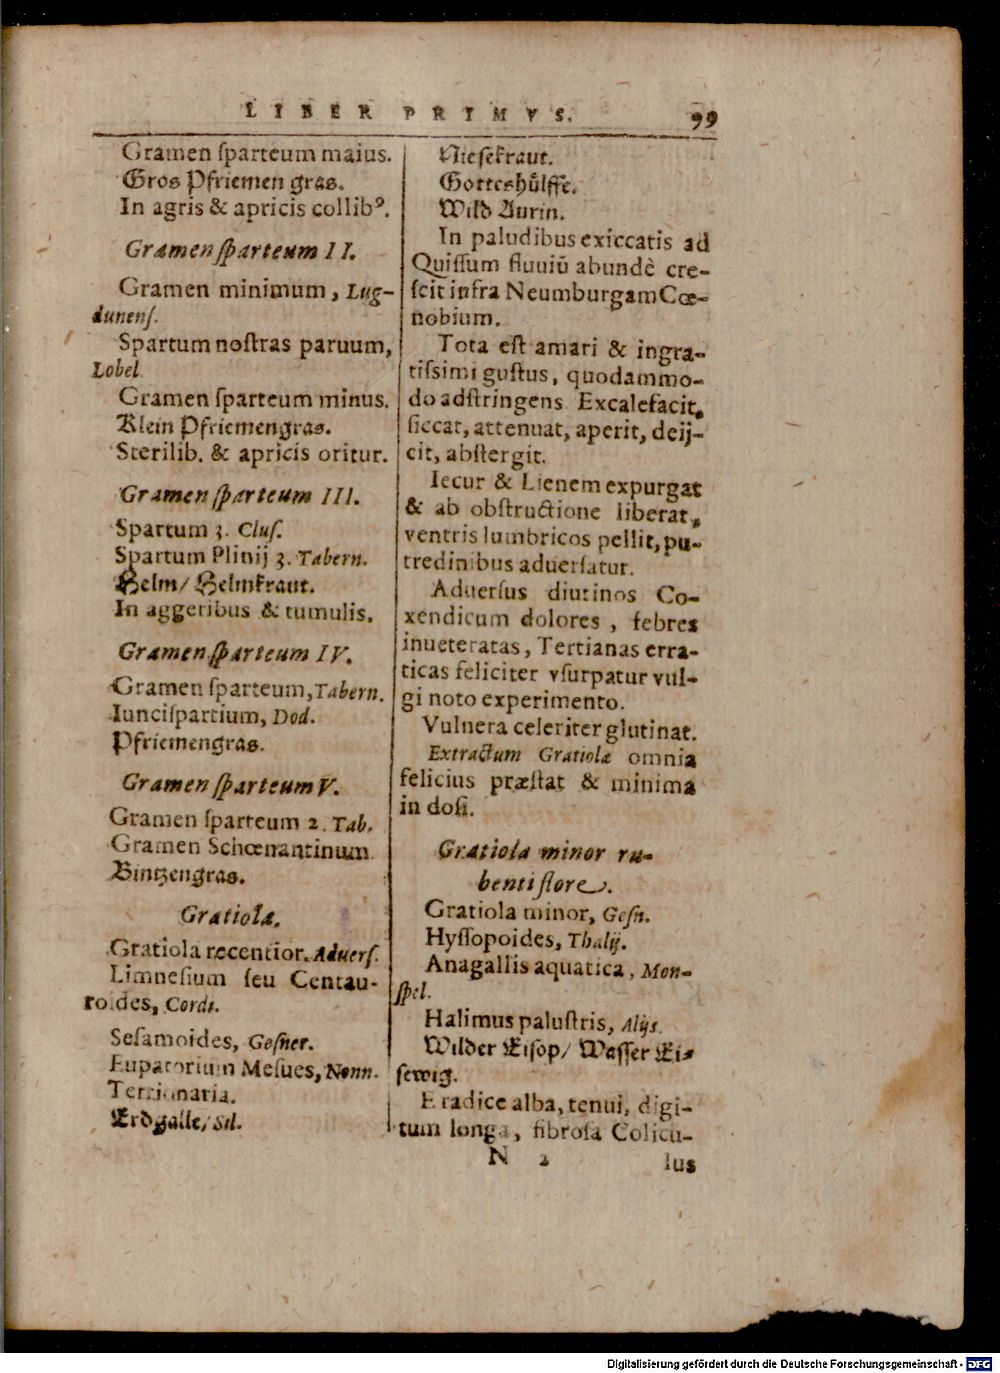 LIBER PRIMVS. 99
Gramen ſparteum maius.
Gros Pfriemen gras.
In agris & apricis collibꝰ.
Gramen ſparteum II.
Gramen minimum, Lug-
dunenſ.
Spartum noſtras paruum,
Lobel
Gramen ſparteum minus.
Klein Pfriemengras.
Sterilib. & apricis oritur.
Gramen ſparteum III.
Spartum 3. Cluſ.
Spartum Plinij 3. Tabern.
Helm/ Helmkraut.
In aggeribus & tumulis.
Gramen ſparteum IV.
Gramen ſparteum, Tabern.
Iunciſpartium, Dod.
Pfriemengras.
Gramen ſparteum V.
Gramen ſparteum 2. Tab.
Gramen Schœnantinum
Bintzengras.
Gratiola.
Gratiola recentior. Aduerſ.
Limneſium ſeu Centau-
roides, Cordi.
Seſamoides, Geſner.
Eupatorium Meſues, Nonn.
Tertianaria.
Erdgalle/ Sil.
Nieſekraut.
Gotteshuͤlffe.
Wild Aurin.
In paludibus exiccatis ad
Quiſſum fluuiū abundè cre-
ſcit infra Neumburgam Cœ-
nobium.
Tota eſt amari & ingra-
tiſſimi guſtus, quodammo-
do adſtringens Excalefacit,
ſiccat, attenuat, aperit, deij-
cit, abſtergit.
Iecur & Lienem expurgat
& ab obſtructione liberat,
ventris lumbricos pellit, pu-
tredinibus aduerſatur.
Aduerſus diutinos Co-
xendicum dolores, febres
inueteratas, Tertianas erra-
ticas feliciter vſurpatur vul-
gi noto experimento.
Vulnera celeriter glutinat.
Extractum Gratiolæ omnia
felicius præſtat & minima
in doſi.
Gratiola minor ru-
benti flore.
Gratiola minor, Geſn.
Hyſſopoides, Thalij.
Anagallis aquatica, Mon-
ſpel.
Halimus paluſtris, Alijs.
Wilder Eiſop/ Waſſer Ei-
ſewig.
E radice alba, tenui, digi-
tum longa, fibroſa Colicu-
N 2 lus
Digitalisierung gefördert durch die Deutsche Forschungsgemeinschaft - DFG